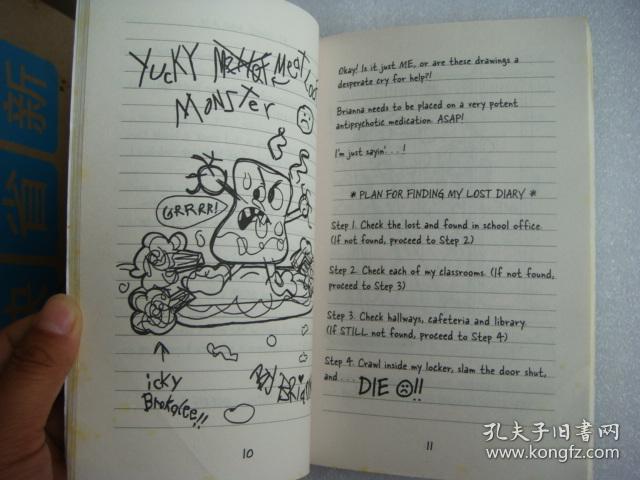 新
省
YucKY Meat
MONSTER
GRRRR!
icky
Brokolee!!
By
BRia
10
Okay! Is it just ME, or are these drawings a
desperate cry for help?!
Brianna needs to be placed on a very potent
antipsychotic medication. ASAP!
I'm just sayin' . . . !
* PLAN FOR FINDING MY LOST DIARY *
Step 1. Check the lost and found in school office.
(If not found, proceed to Step 2)
Step 2. Check each of my classrooms. (If not found,
proceed to Step 3)
Step 3. Check hallways, cafeteria and library.
(If STILL not found, proceed to Step 4)
Step 4. Crawl inside my locker, slam the door shut,
and . . . DIE !!
11
孔夫子旧书网
www.kongfz.com